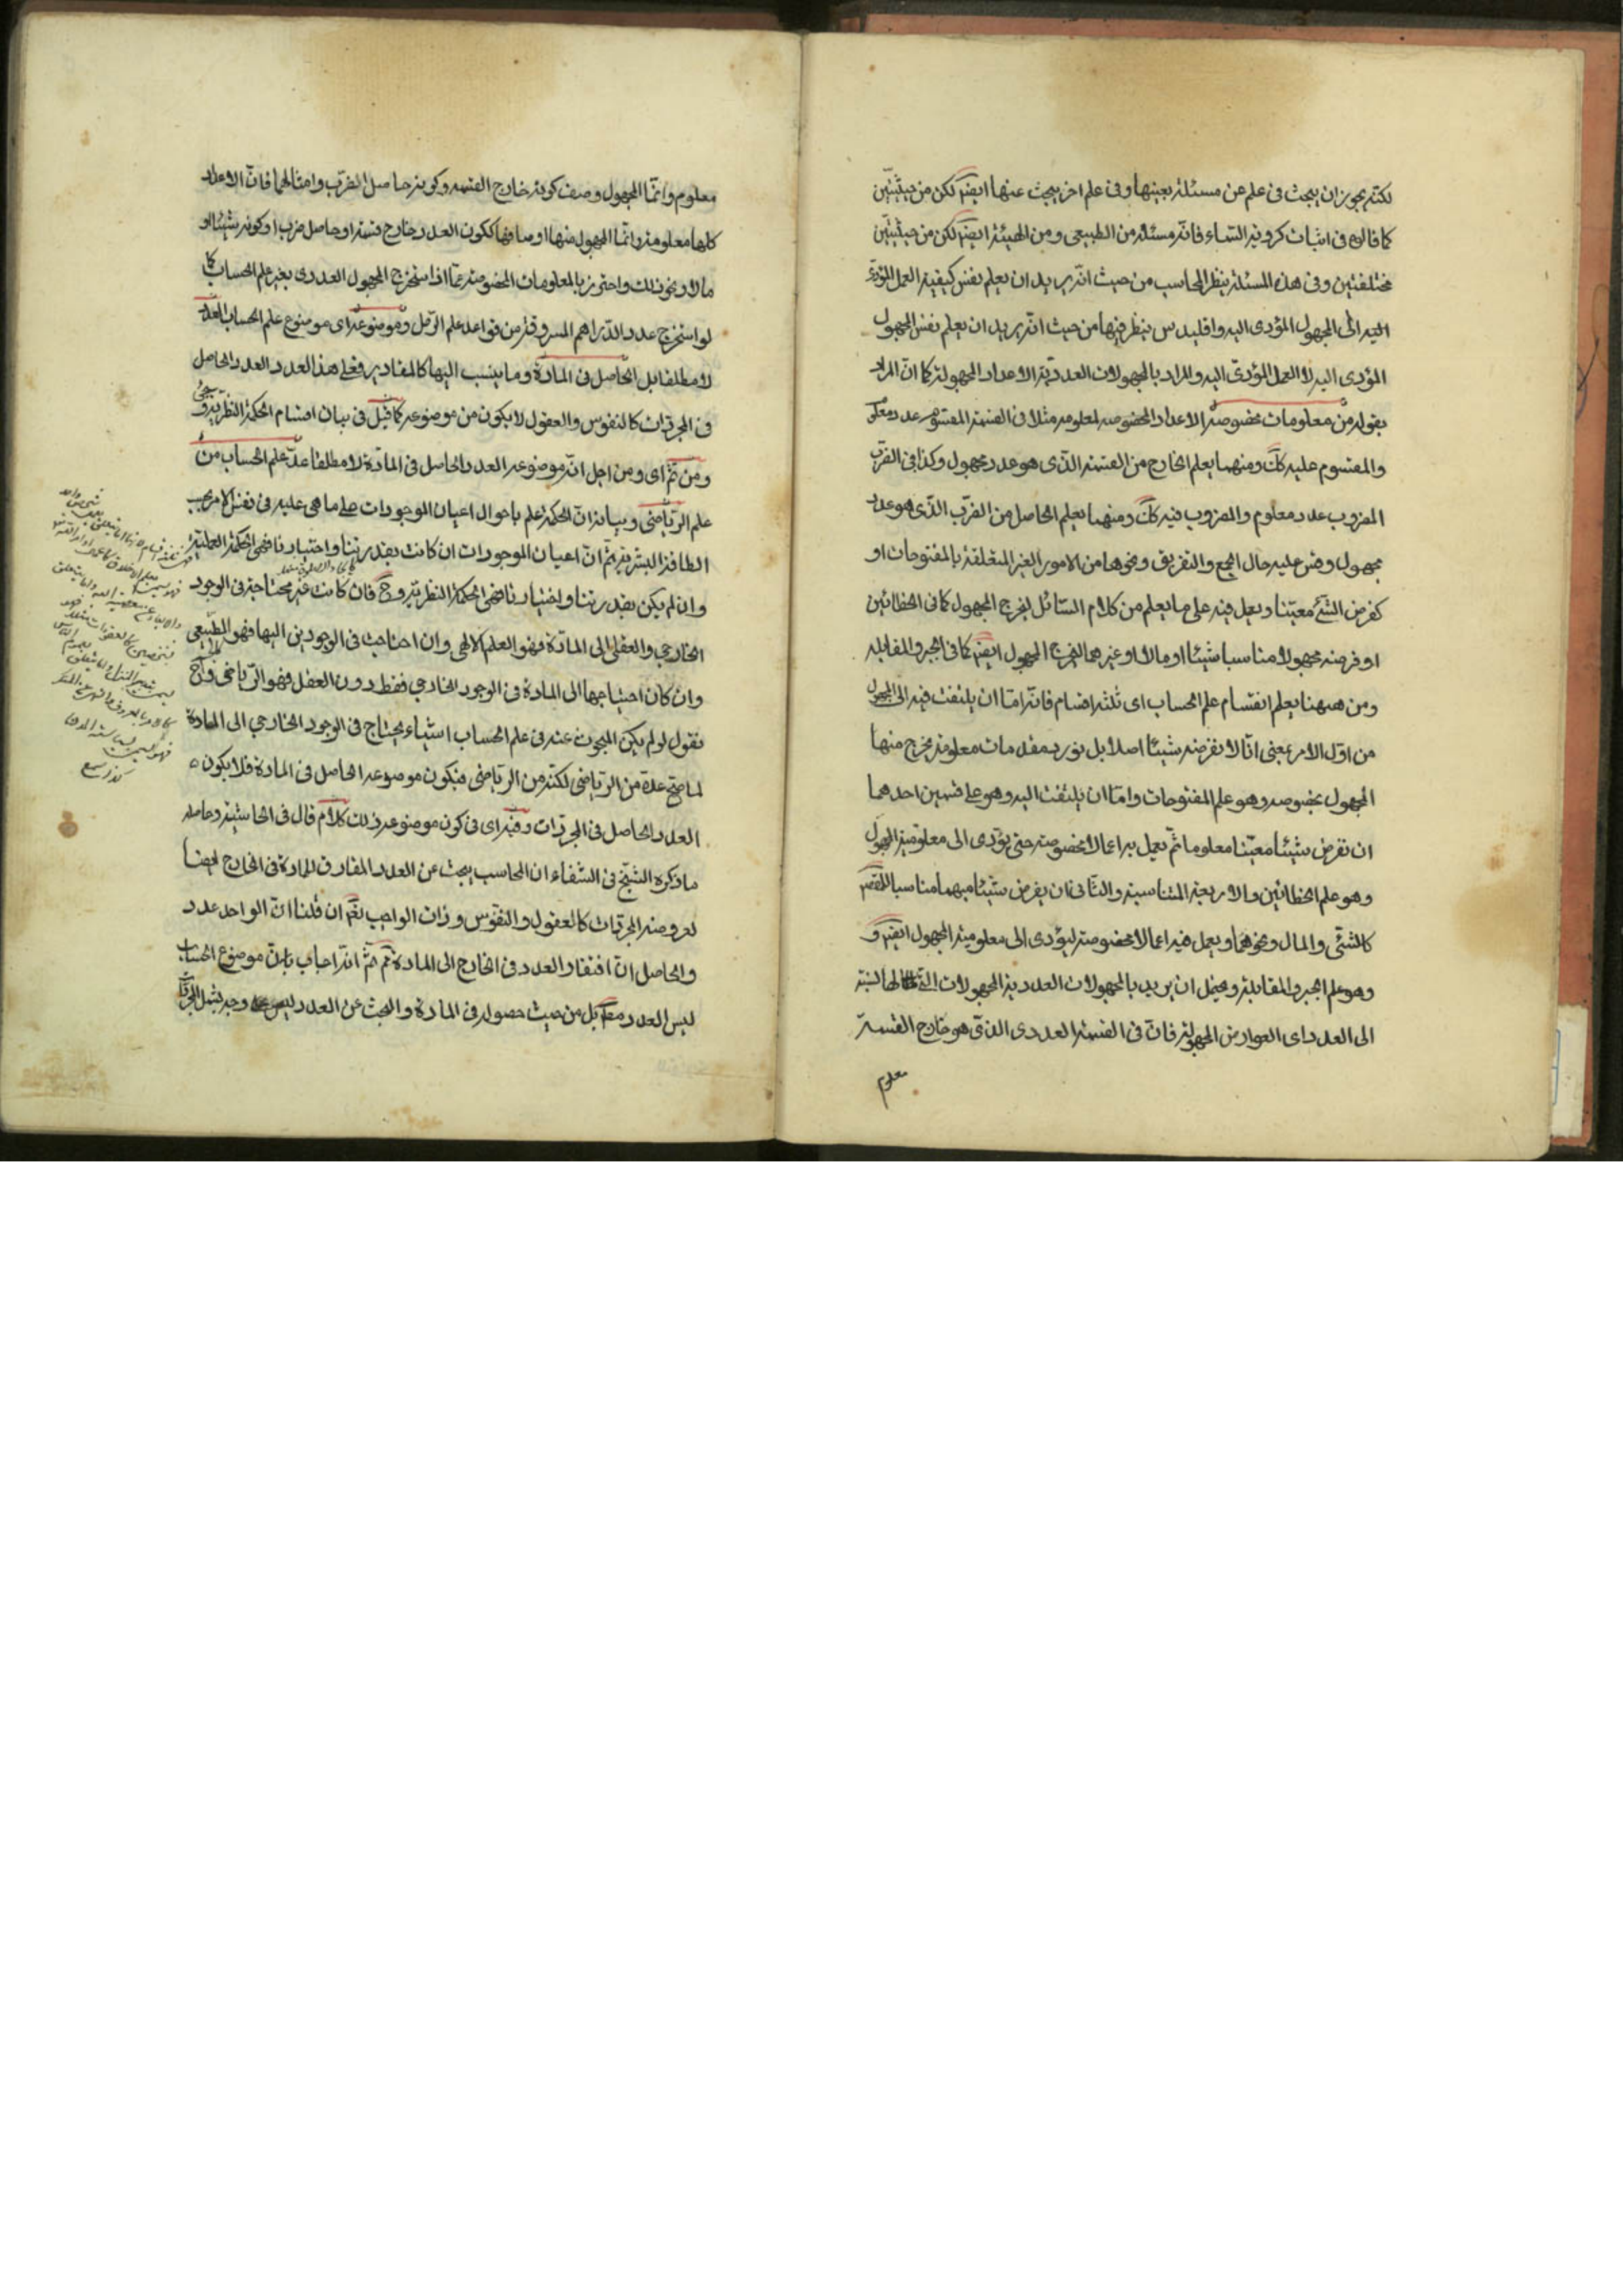 لكنه يجوز ان يبحث فى علم عن مسئلة بعينها وفى علم اخر يبحث عنها ايضا لكن من حيثيتين
كما قالوه فى اثبات كروية السماء فانه مسئلة من الطبيعى ومن الهيئة ايضا لكن من حيثيتين
مختلفتين وفى هذه المسئلة ينظر المحاسب من حيث انه يريد ان يعلم نفس كيفية العمل المؤدى
اليه الى المجهول المؤدى اليه واقليدس ينظر فيها من حيث انه يريد ان يعلم نفس المجهول
المؤدى اليه لا العمل المؤدى اليه والمراد بالمجهولات العددية الاعداد المجهولة كما ان المراد
بقوله من معلومات مخصوصة الاعداد المخصوصه المعلومه مثلا فى القسمة المقسوم عدد معلوم
والمقسوم عليه كك ومنهما يعلم الخارج من القسمه الذى هو عدد مجهول وكذا فى الضرب
المضروب عدد معلوم والمضروب فيه كك ومنهما يعلم الحاصل من الضرب الذى هو عدد
مجهول وقس عليه حال الجمع والتفريق ونحوها من الامور الغير المتعلقة بالمفتوحات او
كفرض الشئ معينا ويعمل فيه على ما يعلم من كلام السائل ليخرج المجهول كما فى الخطائين
او فرضه مجهولا مناسبا شيئا او مالا او غيرهما ليخرج المجهول ايضا كما فى الجبر والمقابله
ومن ههنا يعلم انقسام علم الحساب اى ثلثه اقسام فانه اما ان يلتفت فيه الى المجهول
من اول الامر بمعنى انا لا نفرضه شيئا اصلا بل نورد مقدمات معلومة يخرج منها
المجهول بخصوصه وهو علم المفتوحات واما ان يلتفت اليه وهو على قسمين احدهما
ان نفرض شيئا معينا معلوما ثم يعمل به اعمالا مخصوصة حتى يؤدى الى معلومية المجهول
وهو علم الخطائين والاربعة المتناسبة والثانى ان يفرض شيئا مبهما مناسبا للمقصود
كالشئ والمال ونحوهما ويعمل فيه اعمالا مخصوصة ليؤدى الى معلومية المجهول ايضا و
وهو علم الجبر والمقابلة ويحتمل ان يريد بالمجهولات العددية المجهولات التى لها نسبة
الى العدد اى العوارض المجهولة فان فى القسمة العددى الذى هو خارج القسمة
معلوم
معلوم وانما المجهول وصف كونه خارج القسمه وكونه حاصل الضرب وامثالهما فان الاعداد
كلها معلومة وانما المجهول منها اوصافها ككون العدد خارج قسمة او حاصل ضرب او كونه شيئا او
مالا ونحو ذلك واحترز بالمعلومات المخصوصة عما اذا استخرج المجهول العددى بغير علم الحساب كما
لو استخرج عدد الدراهم المسروقة من قواعد علم الرمل وموضوعه اى موضوع علم الحساب العدد
لا مطلقا بل الحاصل فى المادة وما ينسب اليها كالمقادير فعلى هذا العدد العدد الحاصل
فى المجردات كالنفوس والعقول لا يكون من موضوعه كما قيل فى بيان اقسام الحكمة النظرية و سيجئ
ومن ثم اى ومن اجل انه موضوعه العدد الحاصل فى المادة لا مطلقا عد علم الحساب من
علم الرياضى وبيانه ان الحكمة علم باحوال اعيان الموجودات على ما هى عليه فى نفس الامر بحسب
الطاقة البشرية ثم ان اعيان الموجودات ان كانت بقدرتنا واختيارنا فهى الحكمة العملية
وان لم يكن بقدرتنا واختيارنا فهى الحكمة النظرية وح فان كانت غير محتاجة فى الوجود
الخارجى والعقلى الى المادة فهو العلم الالهى وان احتاجت فى الوجودين اليها فهو الطبيعى
وان كان احتياجها الى المادة فى الوجود الخارجى فقط دون العقل فهو الرياضى وح
نقول لو لم يكن المبحوث عنه فى علم الحساب اشياء يحتاج فى الوجود الخارجى الى المادة
لما صح عدة من الرياضى لكنه من الرياضى فيكون موضوعه الحاصل فى المادة فلا يكون
العدد الحاصل فى المجردات وفيه اى فى كون موضوعه ذلك كلام قال فى الحاشية وحاصله
ما ذكره الشيخ فى الشفاء ان المحاسب يبحث عن العدد المفارق للمادة فى الخارج ايضا
لعروضه المجردات كالعقول والنفوس وذات الواجب نعم ان قلنا ان الواحد عدد
والحاصل ان افتقار العدد فى الخارج الى المادة ثم ثم انه اجاب بان موضوع الحساب
ليس العدد مطلقا بل من حيث حصوله فى المادة والبحث عن العدد ليس على وجه يشمل المجردات